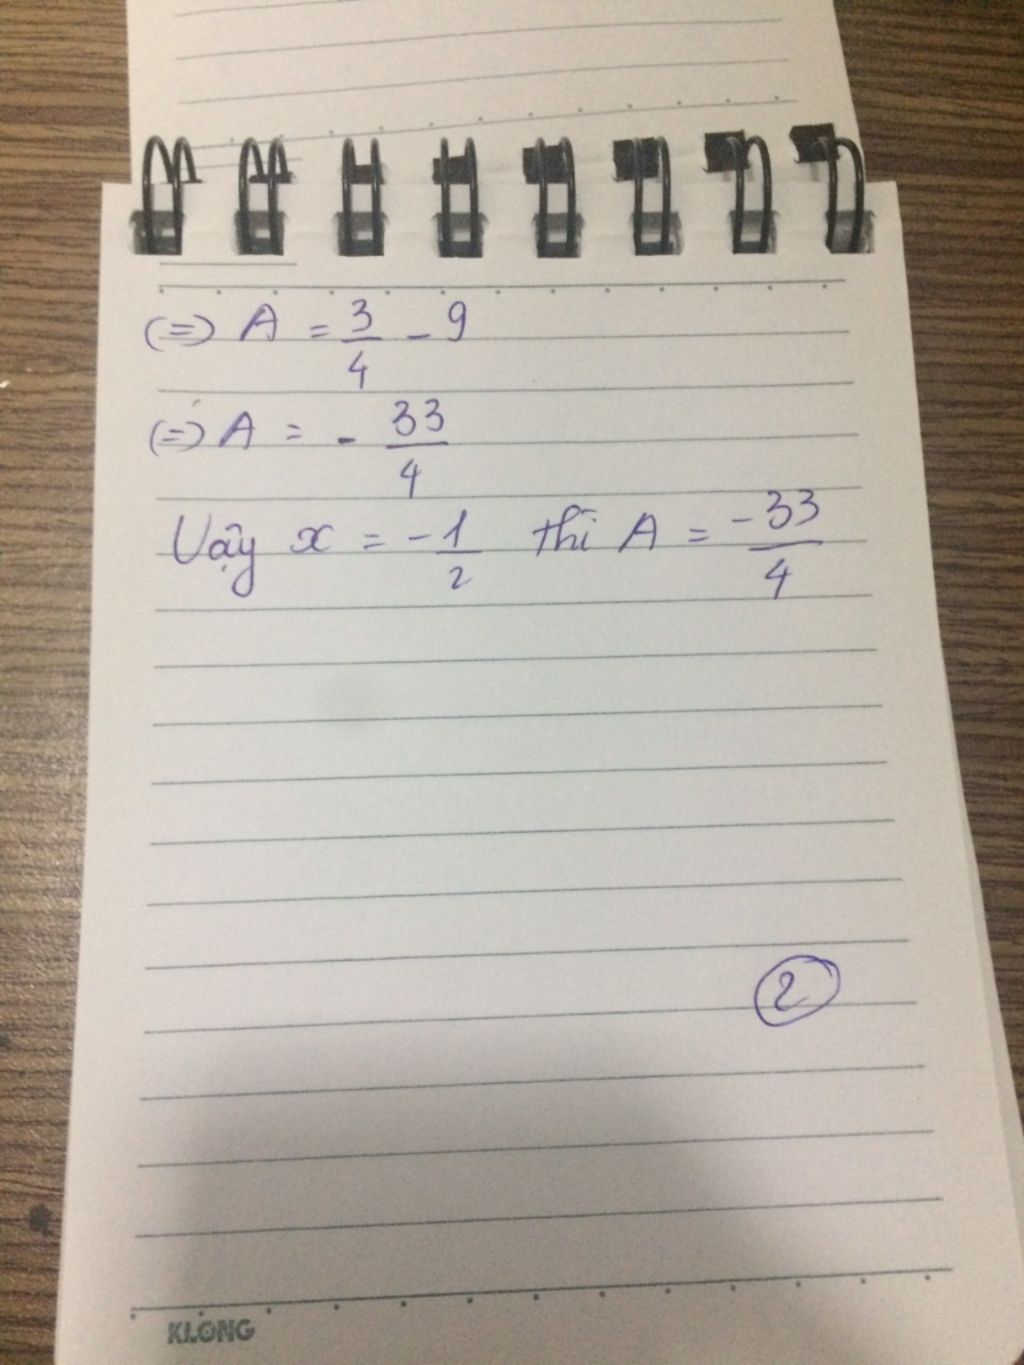 (=) A = 3/4 - 9
(=) A = - 33/4
Vậy x = -1/2 thì A = -33/4
2
KLONG